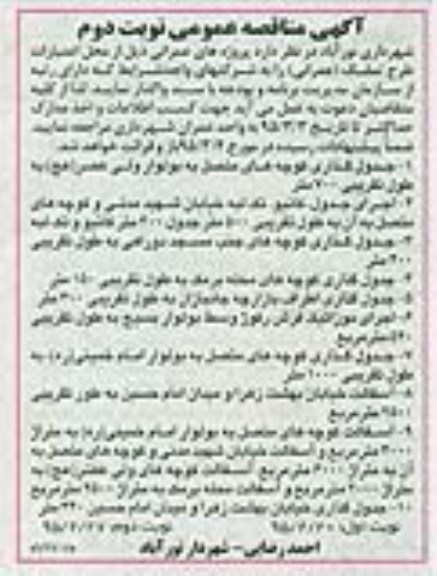 آگهی مناقصه عمومی نوبت دوم
شهرداری نورآباد در نظر دارد پروژه های عمرانی ذیل از محل اعتبارات
طرح تملک (عمرانی) را به شرکتهای واجدشرایط که دارای رتبه
از سازمان مدیریت برنامه و بودجه با سند واگذار نمایند. لذا از کلیه
متقاضیان دعوت به عمل می آید جهت کسب اطلاعات و اخذ مدارک
حداکثر تا تاریخ ۹۵/۳/۳ به واحد عمران شهرداری مراجعه نمایند.
ضمناً پیشنهادات رسیده در مورخ باز و قرائت خواهد شد.
۱- جدول گذاری کوچه های متصل به بولوار ولی عصر(عج) به
طول تقریبی ۷۰۰ متر
۲- اجرای جدول کانیو تک لبه خیابان شهید مدنی و کوچه های
متصل به آن به طول تقریبی ۵۰۰ متر جدول ۲۰۰ متر کانیو و تک لبه
۳- جدول گذاری کوچه های جنب مسجد به طول تقریبی
متر
۴- جدول گذاری کوچه های محله برمک به طول تقریبی ۱۵۰ متر
۵- جدول گذاری اطراف بازارچه جانبازان به طول تقریبی ۳۰۰ متر
۶- اجرای موزائیک فرش رفوژ وسط بولوار بسیج به طول تقریبی
مترمربع
۷- جدول گذاری کوچه های متصل به بولوار امام خمینی(ره) به
طول تقریبی ۱۰۰۰ متر
۸- آسفالت خیابان بهشت زهرا و میدان امام حسین به طور تقریبی
مترمربع
۹- آسفالت کوچه های متصل به بولوار امام خمینی(ره) به متراژ
۳۰۰۰ مترمربع و آسفالت خیابان شهید مدنی و کوچه های متصل به
آن به متراژ مترمربع، آسفالت کوچه های ولی عصر(عج) به
متراژ مترمربع و آسفالت محله برمک به متراژ مترمربع
۱۰- جدول گذاری خیابان بهشت زهرا و میدان امام حسین متر
نوبت اول: ۹۵/۲/۲۰ نوبت دوم: ۹۵/۲/۲۷
احمد رضایی - شهردار نورآباد